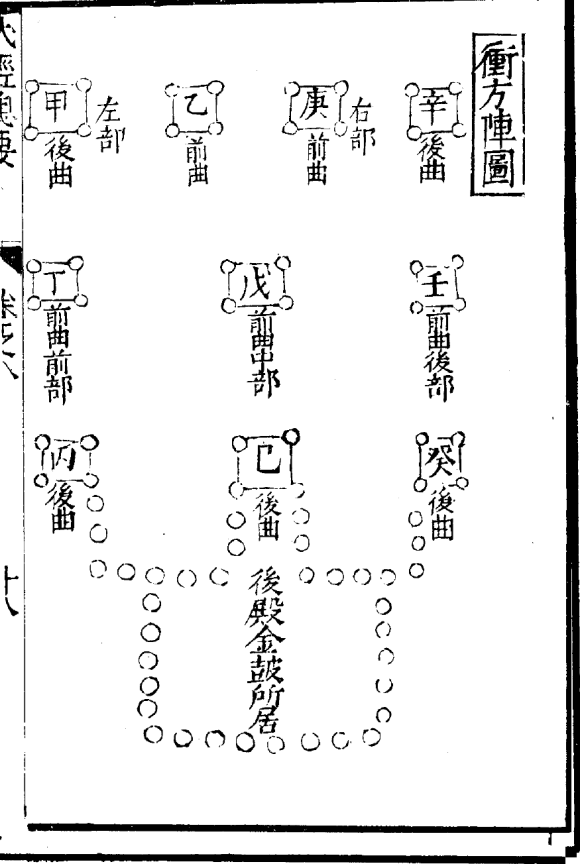 衝方陣圖
辛
後曲
庚
前曲
右部
乙
前曲
甲
後曲
左部
壬
前曲後部
戊
前曲中部
丁
前曲前部
癸
後曲
己
後曲
丙
後曲
後殿金鼓所居
十八